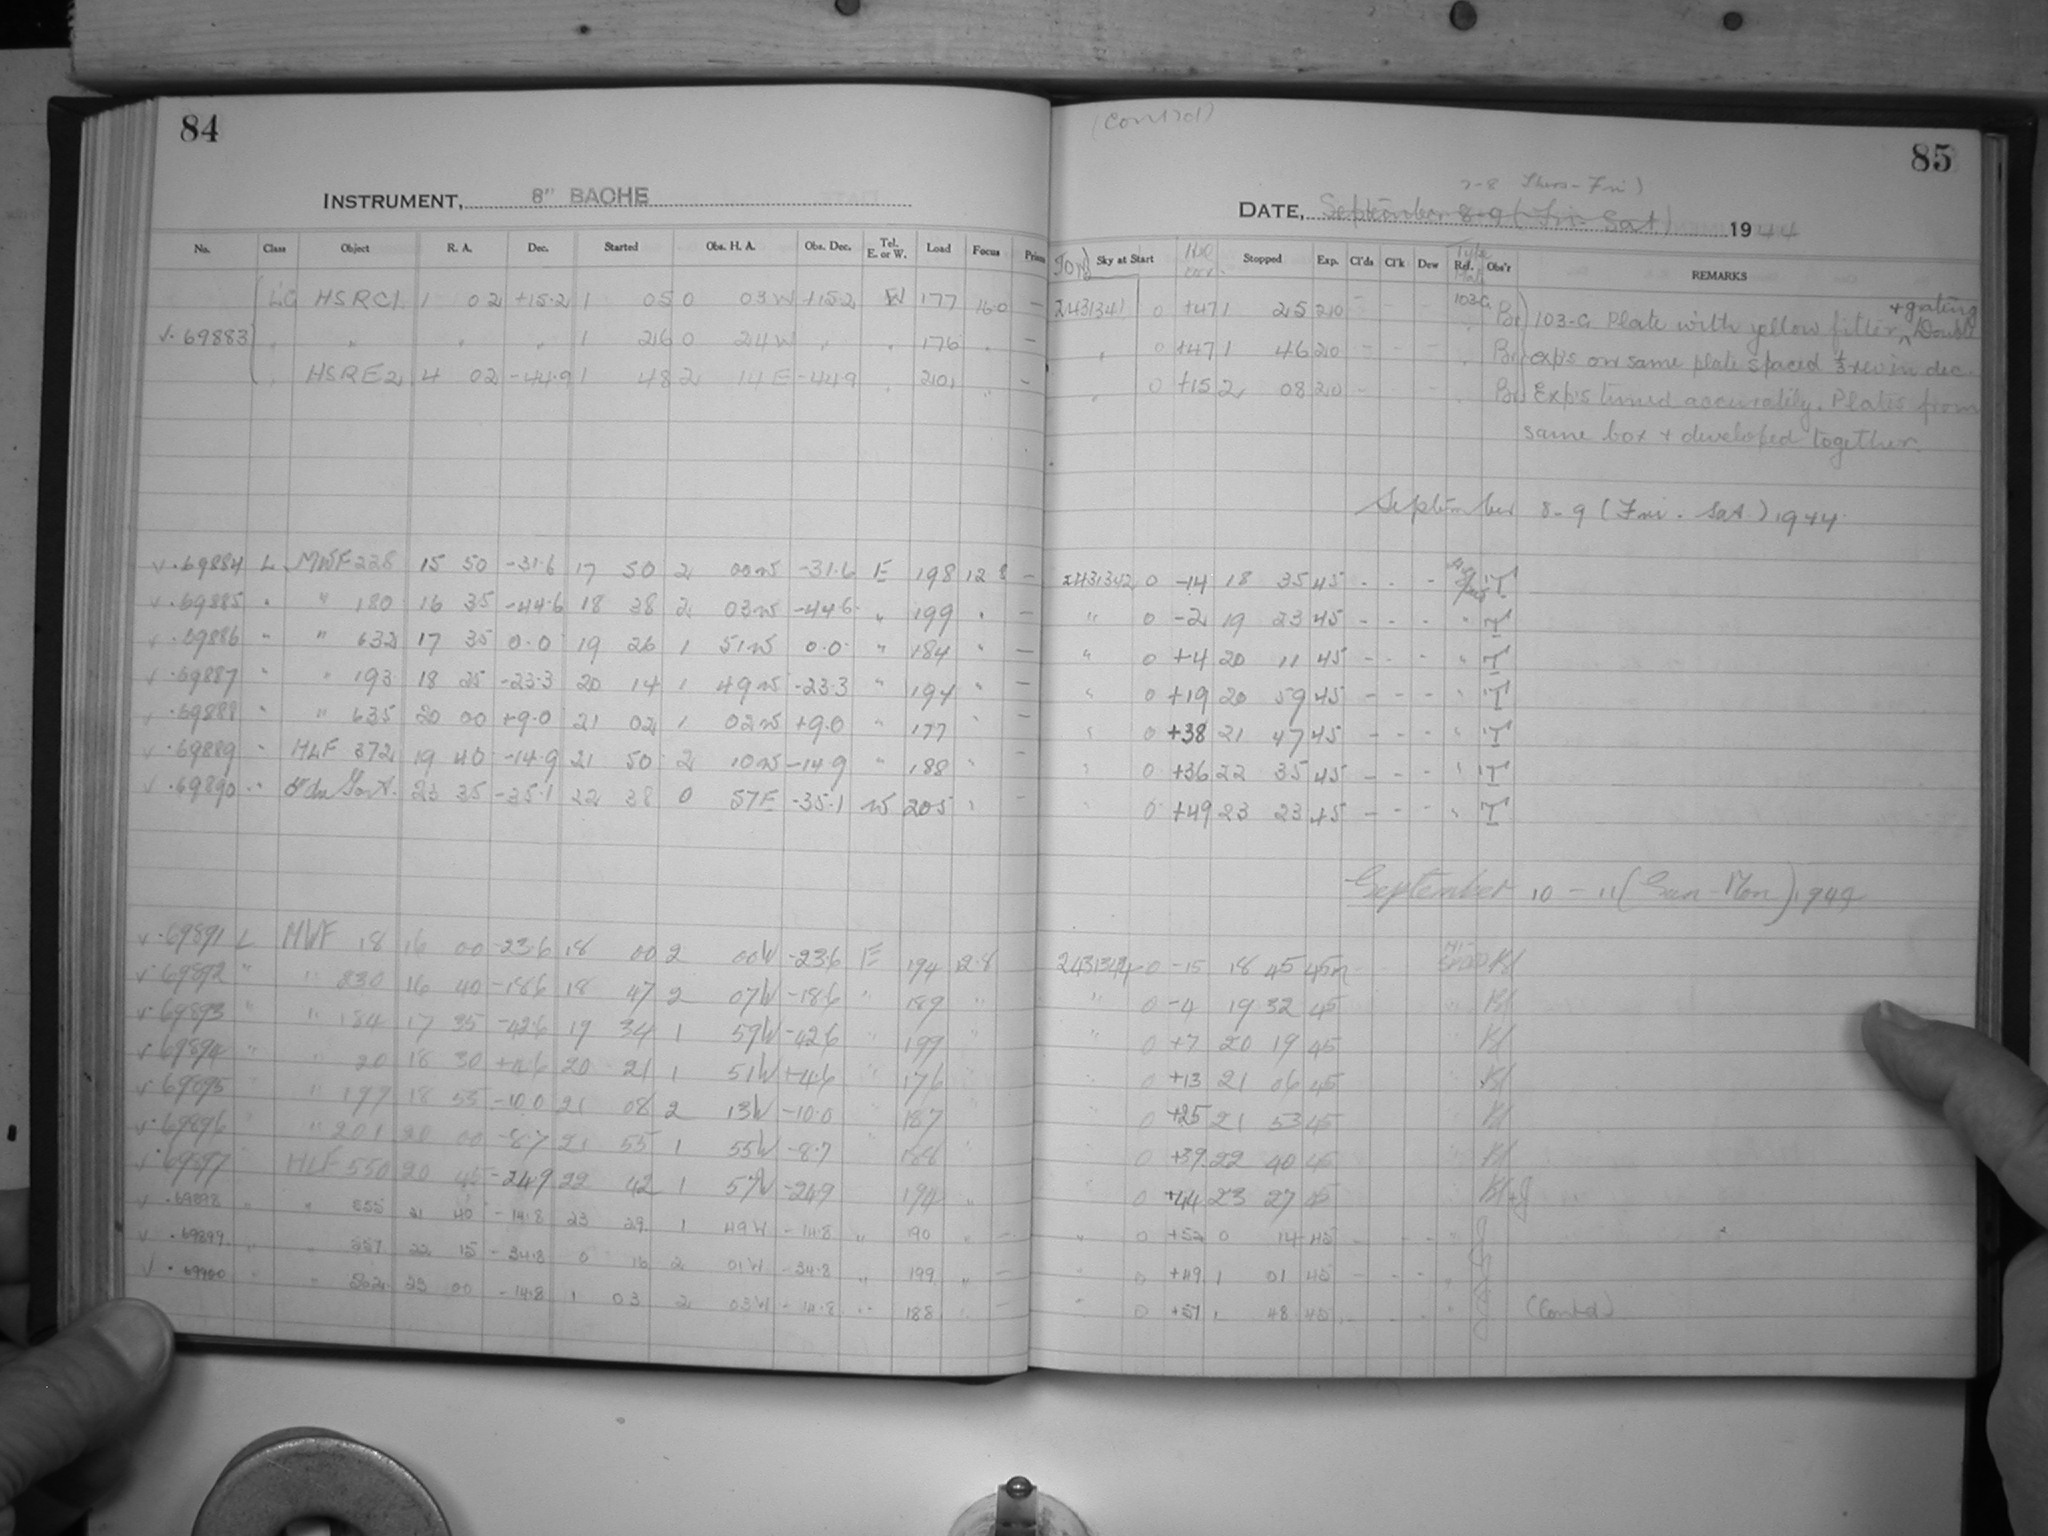 84
INSTRUMENT, 8" BACHE
No. Class Object R. A. Dec. Started Obs. H. A. Obs. Dec. Tel. E. or W. Load Focus Prism
HSRC1 1 02 +15.2 1 05 0 03W +15.2 W 177 16.0 —
69883 " " " 1 26 0 24W " " 176 " —
HSRE2 4 02 -44.9 1 48 2 14E -44.9 " 210 " —
69884 L MWF 228 15 50 -31.6 17 50 2 00W -31.6 E 198 12.8 —
69885 " " 180 16 35 -44.6 18 38 2 03W -44.6 " 199 " —
69886 " " 632 17 35 0.0 19 26 1 51W 0.0 " 184 " —
69887 " " 193 18 25 -23.3 20 14 1 49W -23.3 " 194 " —
69888 " " 635 20 00 +9.0 21 02 1 02W +9.0 " 177 " —
69889 " HLF 372 19 40 -14.9 21 50 2 10W -14.9 " 188 " —
69890 " 23 35 -35.1 22 38 0 57E -35.1 W 205 " —
69891 L MWF 18 16 00 -23.6 18 00 2 00W -23.6 E 194 12.8
69892 " " 230 16 40 -18.6 18 47 2 07W -18.6 " 189 "
69893 " " 184 17 35 -42.6 19 34 1 59W -42.6 " 199 "
69894 " " 20 18 30 +4.6 20 21 1 51W +4.6 " 176
69895 " 197 18 55 -10.0 21 08 2 13W -10.0 187
69896 " 201 20 00 -8.7 21 55 1 55W -8.7 " 188
69897 HLF 550 20 45 -24.9 22 42 1 57W -24.9 194 "
69898 " " 555 21 40 -14.8 23 29 1 49W -14.8 " 190 " —
69899 " " 557 22 15 -34.8 0 16 2 01W -34.8 " 199 " —
69900 " " 562 23 00 -14.8 1 03 2 03W -14.8 " 188 " —
(Contd)
85
7-8 Thurs-Fri)
DATE, September 8-9 (Fri Sat) 1944
Sky at Start Stopped Exp. Cl'ds Cl'k Dew Ref. Obs'r REMARKS
2431341 0 +47 1 25 20 — 103-G Br 103-G Plate with yellow filter + grating Double
" 0 +47 1 46 20 — — — " Br exps on same plate spaced ½ rev in dec.
" 0 +15 2 08 20 — — — " Br Exp's timed accurately. Plates from
same box + developed together
September 8-9 (Fri. Sat.) 1944
2431342 0 -14 18 35 45 - - - T
" 0 -2 19 23 45 - - - " T
" 0 +4 20 11 45 - - - " T
" 0 +19 20 59 45 - - - " T
" 0 +38 21 47 45 - - - " T
" 0 +36 22 35 45 - - - " T
" 0 +49 23 23 45 - - - " T
September 10-11 (Sun-Mon) 1944
2431344 0 -15 18 45 45m
" 0 -4 19 32 45
" 0 +7 20 19 45
" 0 +13 21 06 45
" 0 +25 21 53 45
0 +39 22 40 45
" 0 +44 23 27 45
" 0 +52 0 14 45 - - -
" 0 +49 1 01 45 - - -
" 0 +57 1 48 45 - - - (Contd)